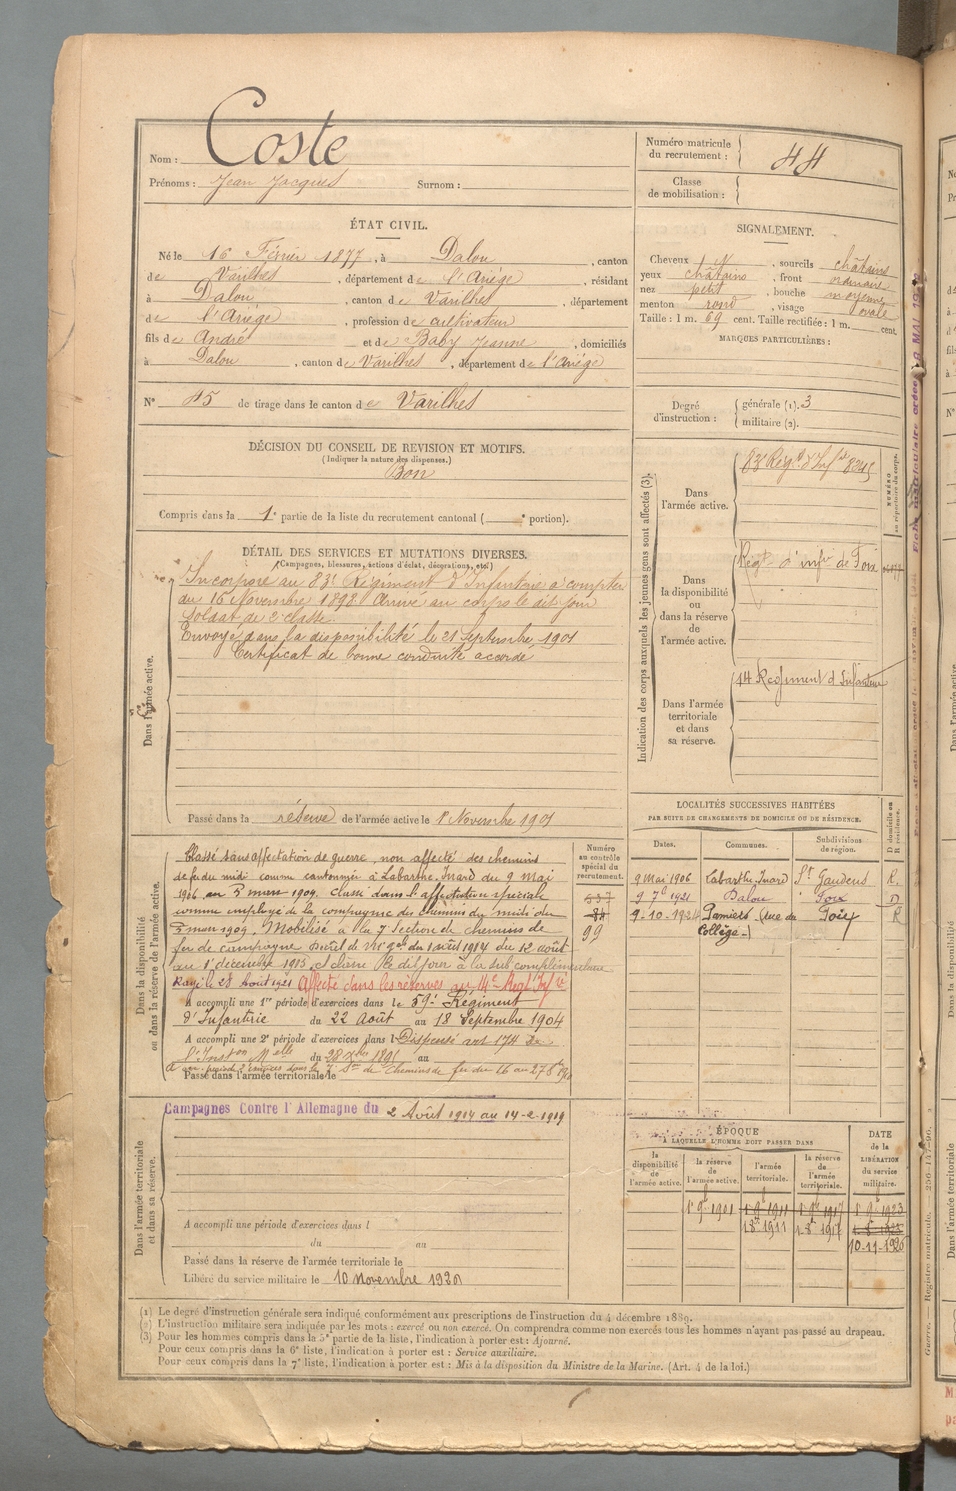 Nom : Coste
Prénoms : Jean Jacques Surnom :
Numéro matricule du recrutement : 44
Classe de mobilisation :
ÉTAT CIVIL.
Né le 16 Février 1877, à Dalou, canton
de Varilhes, département de l'Ariège, résidant
à Dalou, canton de Varilhes, département
de l'Ariège, profession de cultivateur
fils de André et de Baby Jeanne, domiciliés
à Dalou, canton de Varilhes, département de l'Ariège
N° 45 de tirage dans le canton de Varilhes
SIGNALEMENT.
Cheveux, sourcils châtains
yeux châtains, front ordinaire
nez petit, bouche moyenne
menton rond, visage ovale
Taille : 1 m. 69 cent. Taille rectifiée : 1 m. cent.
MARQUES PARTICULIÈRES :
Degré d'instruction : générale (1). 3
militaire (2).
DÉCISION DU CONSEIL DE REVISION ET MOTIFS.
(Indiquer la nature des dispenses.)
Bon
Compris dans la 1e partie de la liste du recrutement cantonal ( e portion).
DÉTAIL DES SERVICES ET MUTATIONS DIVERSES.
(Campagnes, blessures, actions d'éclat, décorations, etc.)
Dans l'armée active.
Incorporé au 83e Régiment d'Infanterie à compter
du 16 Novembre 1898. Arrivé au corps le dit jour
soldat de 2e classe.
Envoyé dans la disponibilité le 21 Septembre 1901
Certificat de bonne conduite accordé
Passé dans la réserve de l'armée active le 1er Novembre 1901
Indication des corps auxquels les jeunes gens sont affectés (3).
NUMÉRO au répertoire du corps.
Dans l'armée active.
83e Régt d'Infie
Dans la disponibilité ou dans la réserve de l'armée active.
Régt d'infie de Foix
Dans l'armée territoriale et dans sa réserve.
14 Régiment d'Infanterie
LOCALITÉS SUCCESSIVES HABITÉES
PAR SUITE DE CHANGEMENTS DE DOMICILE OU DE RÉSIDENCE.
Dates. Communes. Subdivisions de région. D domicile ou R résidence.
9 Mai 1906 Labarthe-Inard St Gaudens R.
9 7e 1921 Dalou Foix D
9-10-1924 Pamiers (rue du Collège) Foix R
Dans la disponibilité ou dans la réserve de l'armée active.
Numéro au contrôle spécial du recrutement.
637
84
99
Classé sans affectation de guerre, non affecté des chemins
de fer du midi comme cantonnier à Labarthe-Inard du 9 mai
1906 au 3 mars 1909. Classé dans l'affectation spéciale
comme employé de la compagnie des chemins du midi du
3 mars 1909. Mobilisé à la 7e Section de chemins de
fer de campagne du 12 août
au 1er décembre 1915 le dit jour à la sub complémentaire
Rayé le 28 Août 1921 Affecté dans les réserves au 14e Regt Infie
A accompli une 1re période d'exercices dans le 59e Régiment
d'Infanterie du 22 Août au 18 Septembre 1904
A accompli une 2e période d'exercices dans l Dispensé art 174 de
l'Inston Melle du 28 Xbre 1895 au
Passé dans l'armée territoriale le
Dans l'armée territoriale et dans sa réserve.
Campagnes Contre l'Allemagne du 2 Août 1914 au 14-2-1919
A accompli une période d'exercices dans l
du au
Passé dans la réserve de l'armée territoriale le
Libéré du service militaire le 10 novembre 1926
ÉPOQUE
A LAQUELLE L'HOMME DOIT PASSER DANS
la disponibilité de l'armée active. la réserve de l'armée active. l'armée territoriale. la réserve de l'armée territoriale.
DATE de la LIBÉRATION du service militaire.
1er 9bre 1901 1er 9bre 1911 1er 9bre 1917 1er 9bre 1923
1-8bre 1911 1-8bre 1917
10-11-1926
(1) Le degré d'instruction générale sera indiqué conformément aux prescriptions de l'instruction du 4 décembre 1889.
(2) L'instruction militaire sera indiquée par les mots : exercé ou non exercé. On comprendra comme non exercés tous les hommes n'ayant pas passé au drapeau.
(3) Pour les hommes compris dans la 5e partie de la liste, l'indication à porter est : Ajourné.
Pour ceux compris dans la 6e liste, l'indication à porter est : Service auxiliaire.
Pour ceux compris dans la 7e liste, l'indication à porter est : Mis à la disposition du Ministre de la Marine. (Art. 4 de la loi.)